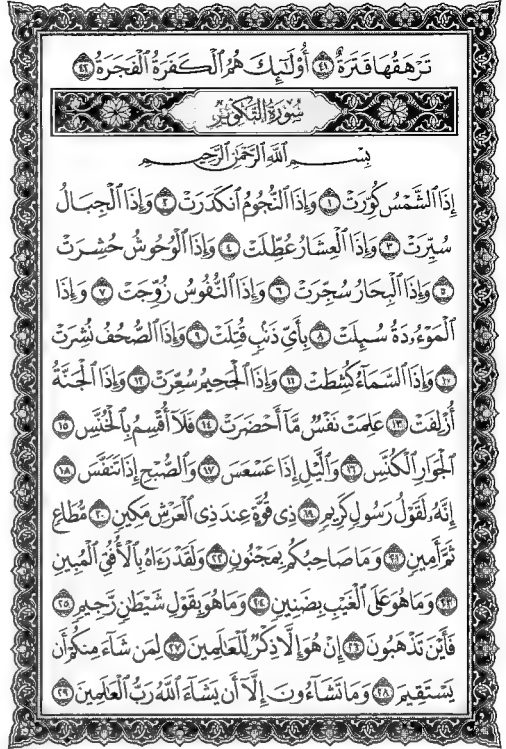 تَرْهَقُهَا قَتَرَةٌ ٤١ أُوْلَـٰٓئِكَ هُمُ الْكَفَرَةُ الْفَجَرَةُ ٤٢
سُورَةُ التَّكْوِيرِ
بِسْمِ اللَّهِ الرَّحْمَـٰنِ الرَّحِيمِ
إِذَا الشَّمْسُ كُوِّرَتْ ١ وَإِذَا النُّجُومُ انكَدَرَتْ ٢ وَإِذَا الْجِبَالُ
سُيِّرَتْ ٣ وَإِذَا الْعِشَارُ عُطِّلَتْ ٤ وَإِذَا الْوُحُوشُ حُشِرَتْ
٥ وَإِذَا الْبِحَارُ سُجِّرَتْ ٦ وَإِذَا النُّفُوسُ زُوِّجَتْ ٧ وَإِذَا
الْمَوْءُۥدَةُ سُئِلَتْ ٨ بِأَيِّ ذَنۢبٍ قُتِلَتْ ٩ وَإِذَا الصُّحُفُ نُشِرَتْ
١٠ وَإِذَا السَّمَآءُ كُشِطَتْ ١١ وَإِذَا الْجَحِيمُ سُعِّرَتْ ١٢ وَإِذَا الْجَنَّةُ
أُزْلِفَتْ ١٣ عَلِمَتْ نَفْسٌ مَّآ أَحْضَرَتْ ١٤ فَلَآ أُقْسِمُ بِالْخُنَّسِ ١٥
الْجَوَارِ الْكُنَّسِ ١٦ وَالَّيْلِ إِذَا عَسْعَسَ ١٧ وَالصُّبْحِ إِذَا تَنَفَّسَ ١٨
إِنَّهُۥ لَقَوْلُ رَسُولٍ كَرِيمٍ ١٩ ذِي قُوَّةٍ عِندَ ذِي الْعَرْشِ مَكِينٍ ٢٠ مُّطَاعٍ
ثَمَّ أَمِينٍ ٢١ وَمَا صَاحِبُكُم بِمَجْنُونٍ ٢٢ وَلَقَدْ رَءَاهُ بِالْأُفُقِ الْمُبِينِ
٢٣ وَمَا هُوَ عَلَى الْغَيْبِ بِضَنِينٍ ٢٤ وَمَا هُوَ بِقَوْلِ شَيْطَـٰنٍ رَّجِيمٍ ٢٥
فَأَيْنَ تَذْهَبُونَ ٢٦ إِنْ هُوَ إِلَّا ذِكْرٌ لِّلْعَـٰلَمِينَ ٢٧ لِمَن شَآءَ مِنكُمْ أَن
يَسْتَقِيمَ ٢٨ وَمَا تَشَآءُونَ إِلَّآ أَن يَشَآءَ اللَّهُ رَبُّ الْعَـٰلَمِينَ ٢٩